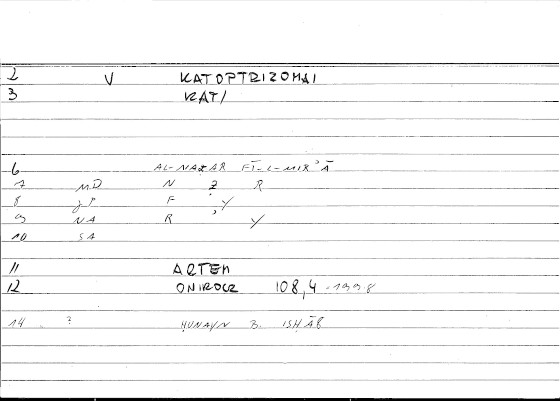 2 V KATOPTRIZOMAI
3 KAT/
6 AL-NAẒAR FĪ-L-MIRʾĀ
7 MD N Ẓ R
8 JP F , Y
9 NA R Y
10 SA
11 ARTEM
12 ONIROCR 108,4 -199 8
14 ? ḤUNAYN B. ISḤĀQ